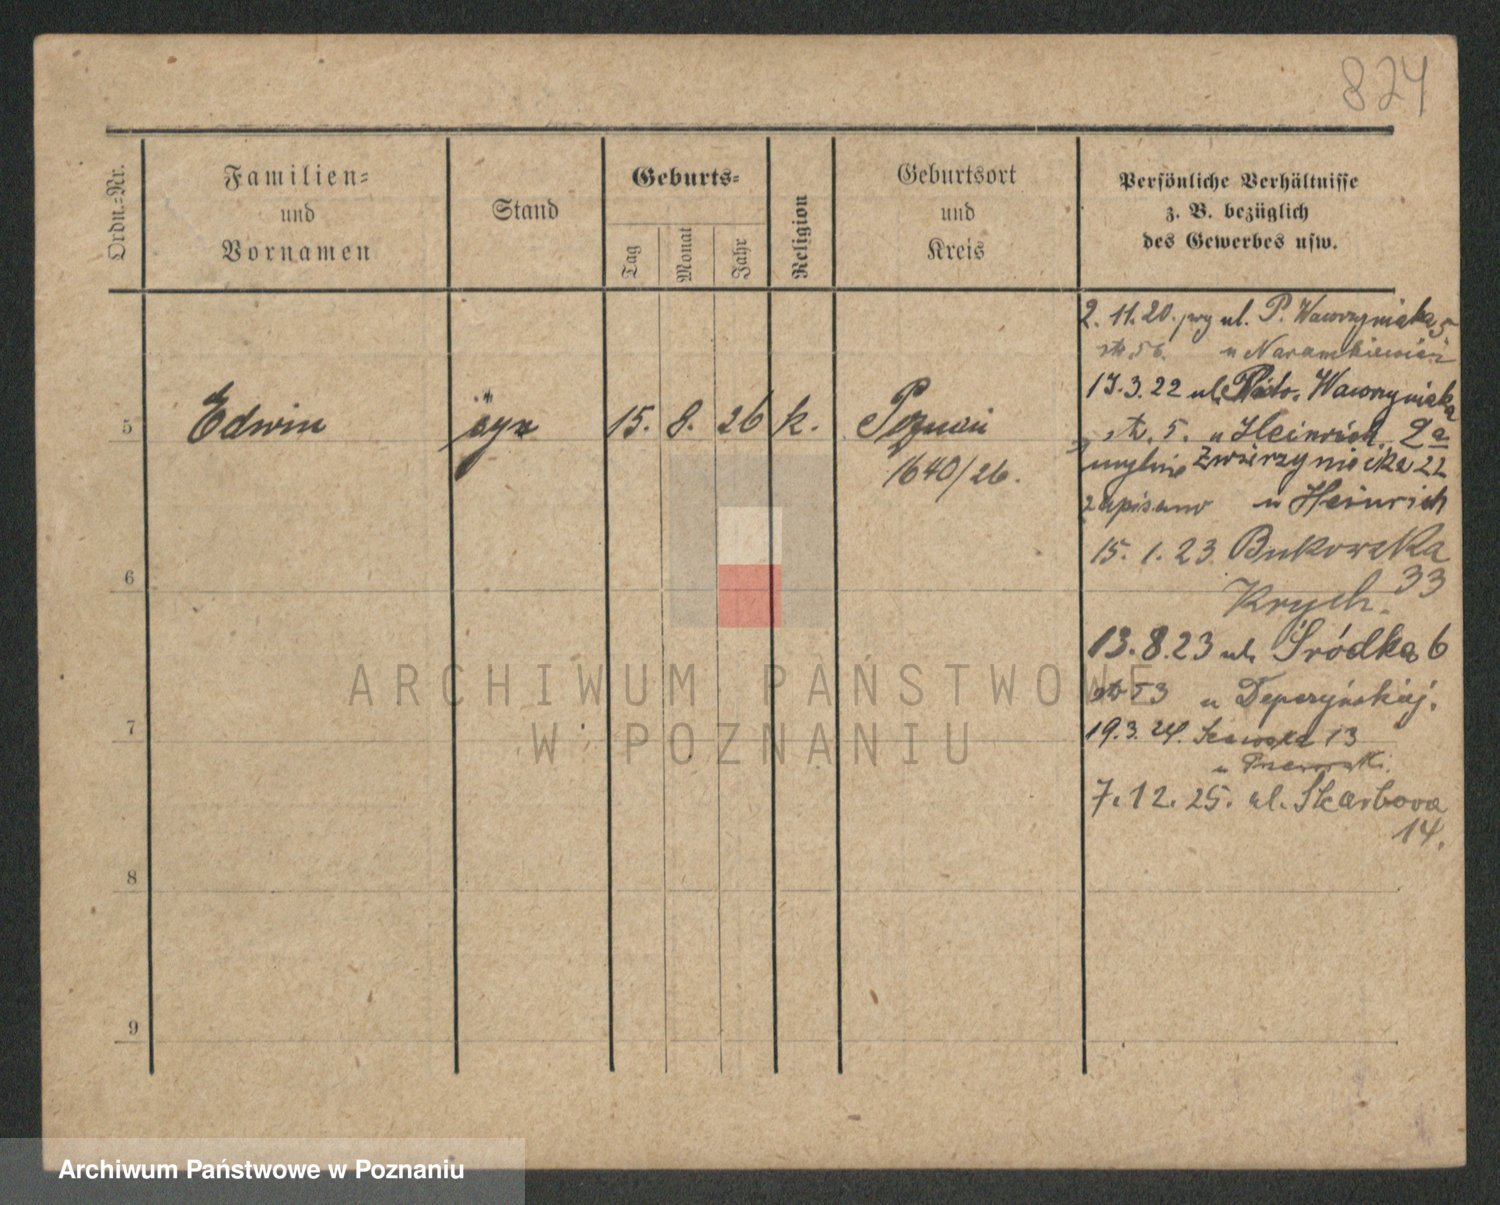 824
Ordn.-Nr.
Familien-
und
Vornamen
Stand
Geburts-
Tag
Monat
Jahr
Religion
Geburtsort
und
Kreis
Persönliche Verhältnisse
z. B. bezüglich
des Gewerbes usw.
5
Edwin
syn
15. 8. 26
k.
Poznań
1640/26.
6
7
8
9
2. 11. 20. przy ul. P. Wawrzyniaka 5
u Naramkiewicz
13. 3. 22 ul. Wawrzyniaka
5. u Heinrich. 2a
mylnie Zwierzyniecka 22
zapisano u Heinrich
15. 1. 23 Bukowska
33
Krych.
13. 8. 23 ul. Śródka 6
53 u Depczyńskiej.
19. 3. 24. Szewska 13
u
7. 12. 25. ul. Skarbowa
14.
ARCHIWUM PAŃSTWOWE
W POZNANIU
Archiwum Państwowe w Poznaniu